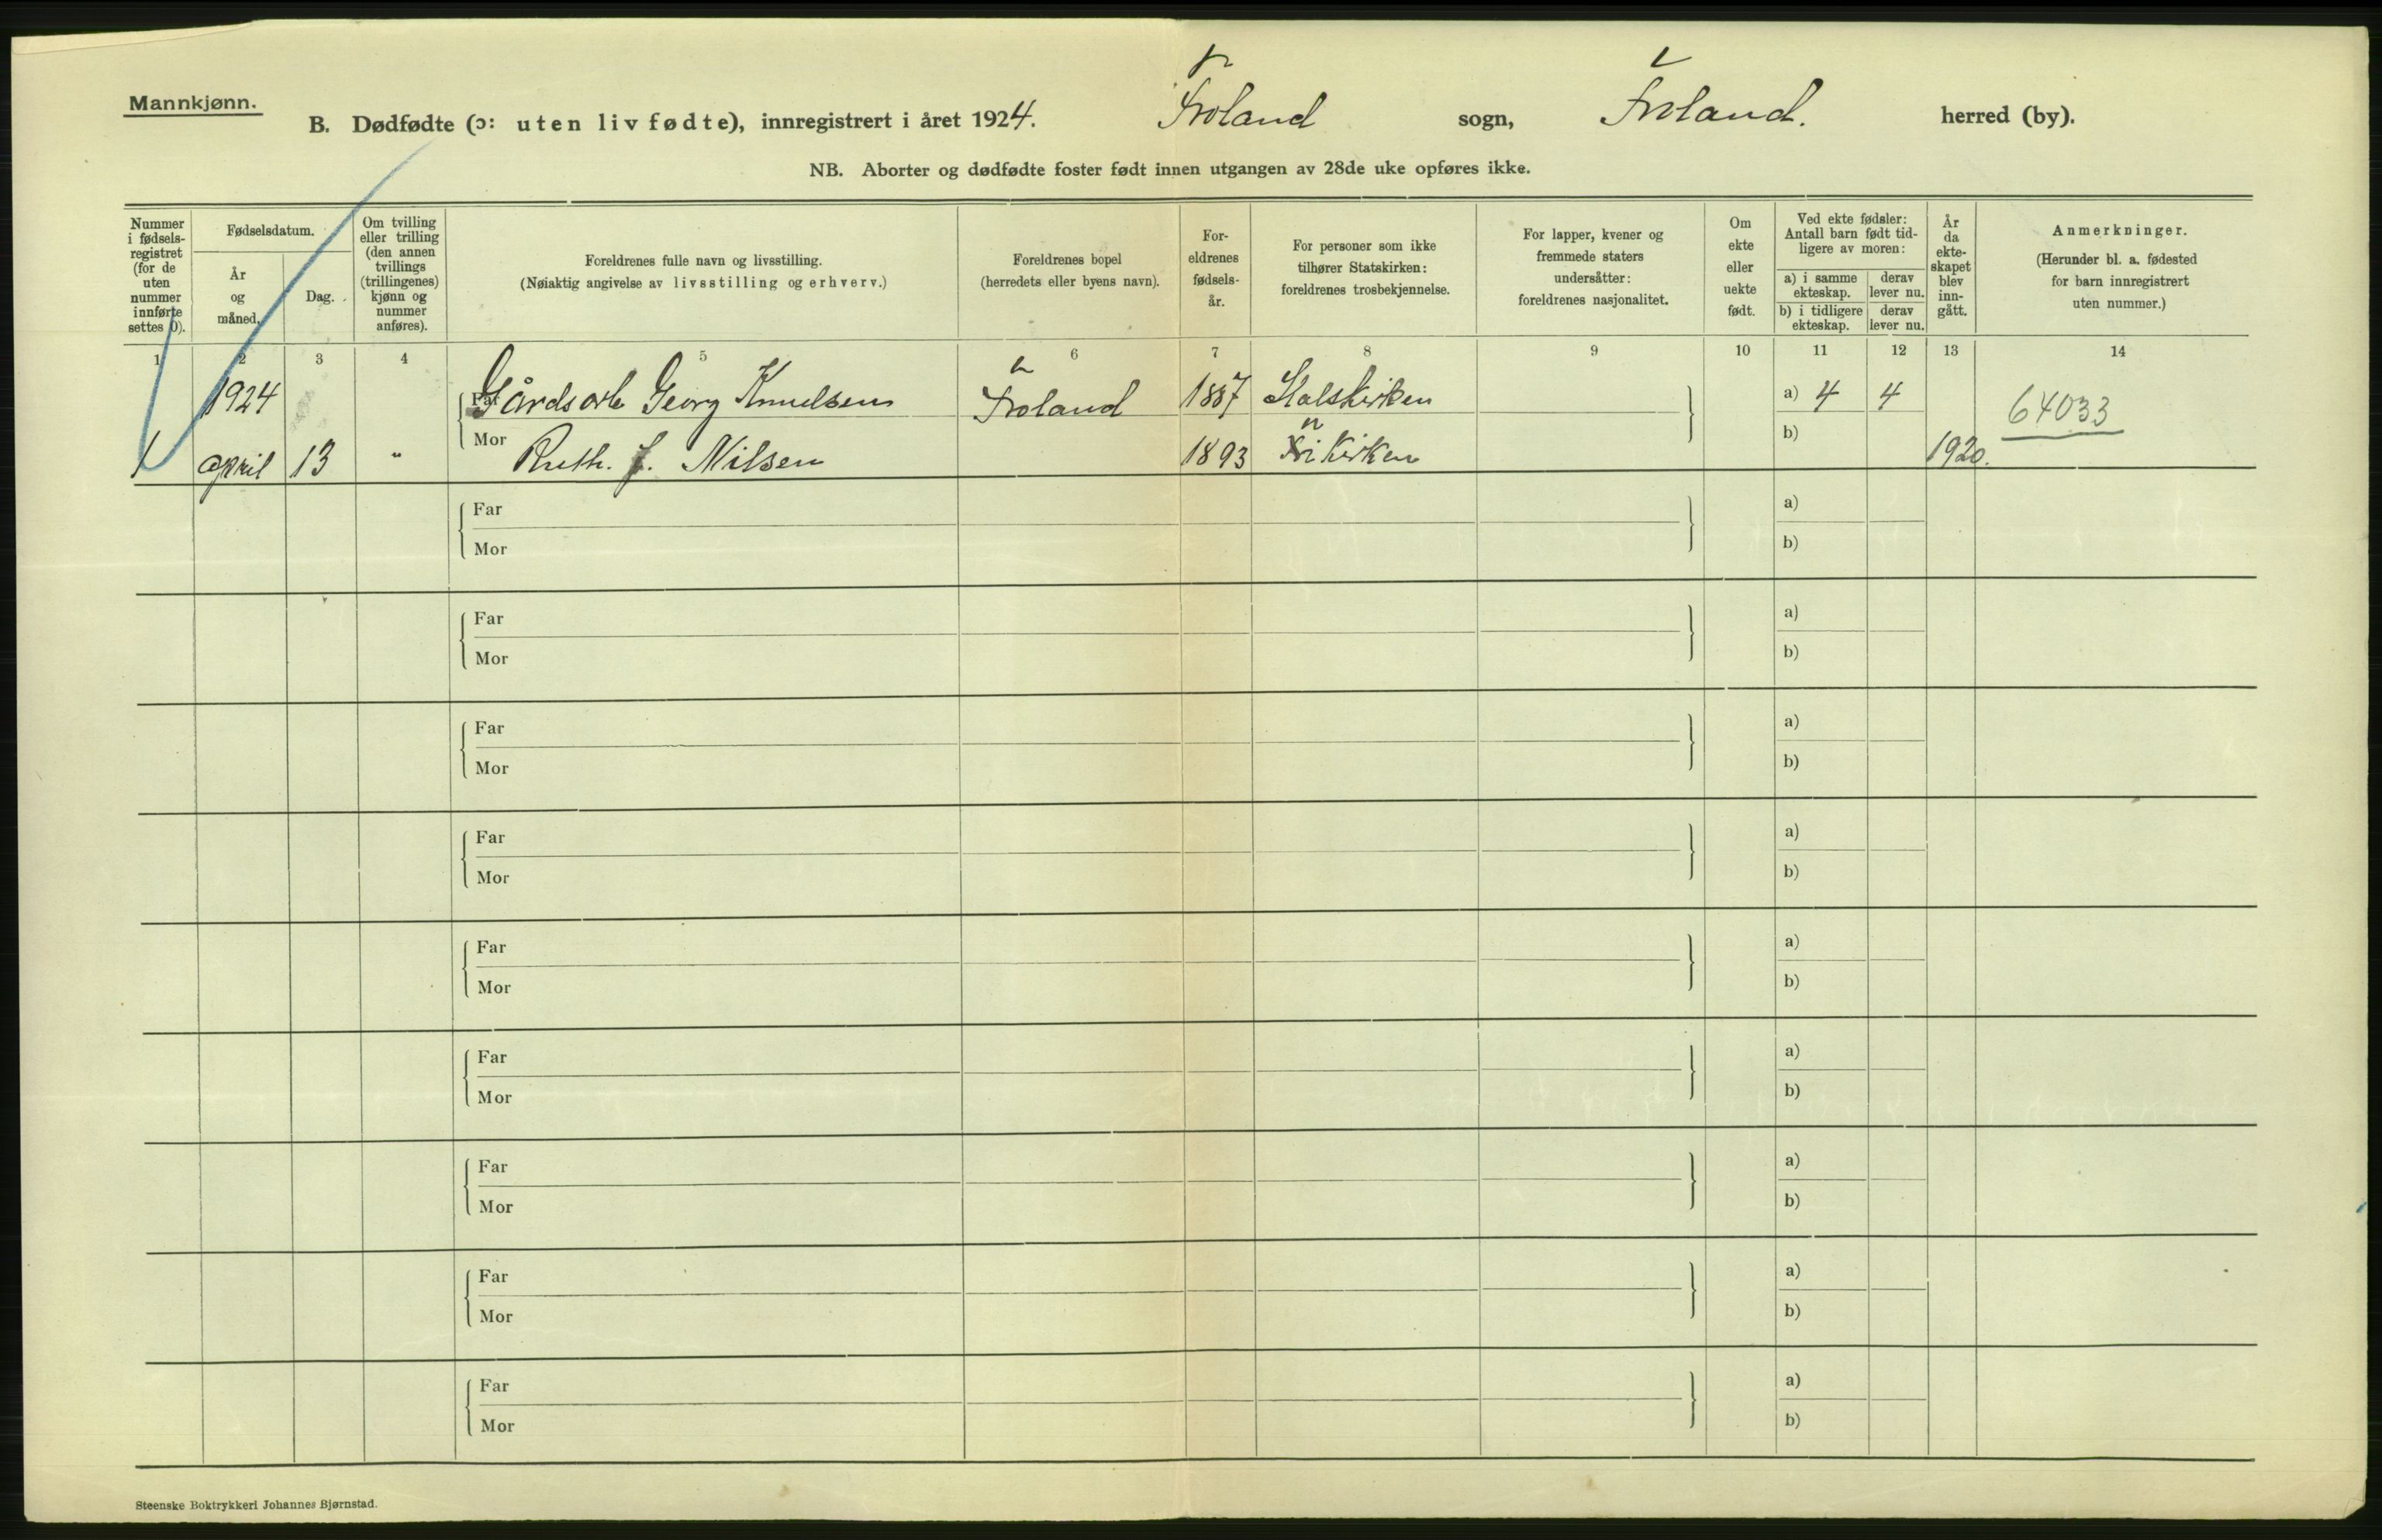 Mannkjønn.
B. Dødfødte (ɔ: uten liv fødte), innregistrert i året 1924. Froland sogn, Froland. herred (by).
NB. Aborter og dødfødte foster født innen utgangen av 28de uke opføres ikke.
Nummer i fødsels-registret (for de uten nummer innførte settes 0).
Fødselsdatum.
År og måned.
Dag.
Om tvilling eller trilling (den annen tvillings (trillingenes) kjønn og nummer anføres).
Foreldrenes fulle navn og livsstilling.
(Nøiaktig angivelse av livsstilling og erhverv.)
Foreldrenes bopel
(herredets eller byens navn).
For-eldrenes fødsels-år.
For personer som ikke tilhører Statskirken: foreldrenes trosbekjennelse.
For lapper, kvener og fremmede staters undersåtter: foreldrenes nasjonalitet.
Om ekte eller uekte født.
Ved ekte fødsler: Antall barn født tid-ligere av moren:
a) i samme ekteskap.
derav lever nu.
b) i tidligere ekteskap.
derav lever nu.
År da ekte-skapet blev inn-gått.
Anmerkninger.
(Herunder bl. a. fødested for barn innregistrert uten nummer.)
1 2 3 4 5 6 7 8 9 10 11 12 13 14
1924 Far Gårdsarb Georg Knudsen Froland 1887 Statskirken a) 4 4 64033
1 april 13 " Mor Ruth. J. Nilsen 1893 Frikirken b) 1920.
Far a)
Mor b)
Far a)
Mor b)
Far a)
Mor b)
Far a)
Mor b)
Far a)
Mor b)
Far a)
Mor b)
Far a)
Mor b)
Far a)
Mor b)
Far a)
Mor b)
Steenske Boktrykkeri Johannes Bjørnstad.